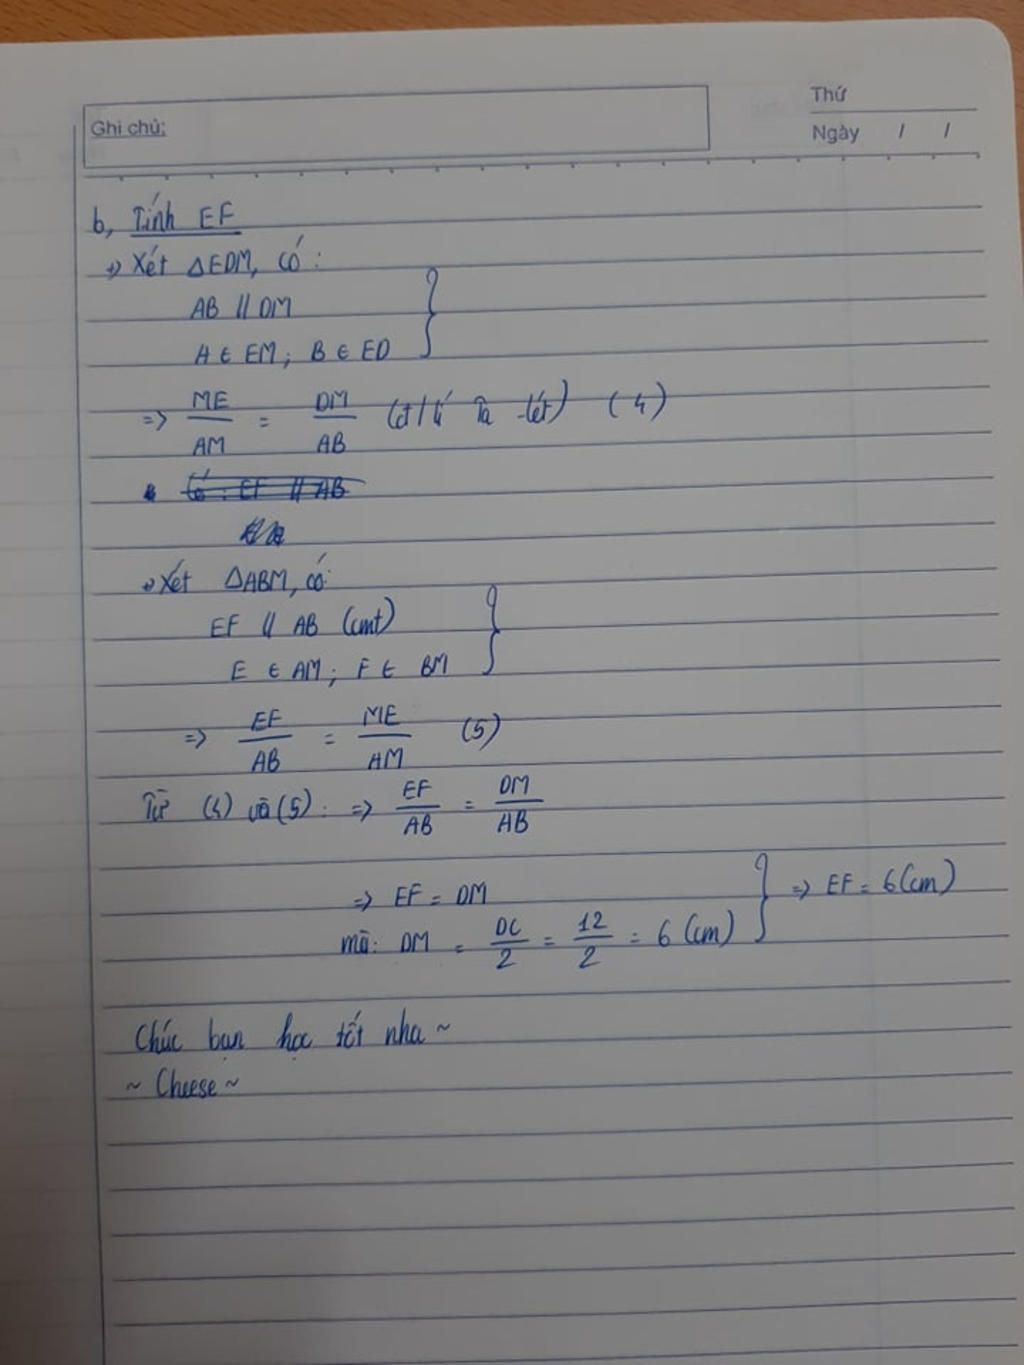 Thứ
Ghi chú:
Ngày / /
b, Tính EF
+) Xét ΔEDM, có:
AB // DM
A ∈ EM; B ∈ ED
=> ME/AM = DM/AB (đ/lí Ta-lét) (4)
Có: EF // AB
+) Xét ΔABM, có:
EF // AB (cmt)
E ∈ AM; F ∈ BM
=> EF/AB = ME/AM (5)
Từ (4) và (5): => EF/AB = DM/AB
=> EF = DM
mà: DM = DC/2 = 12/2 = 6 (cm) } => EF = 6 (cm)
Chúc bạn học tốt nha ~
~ Cheese ~